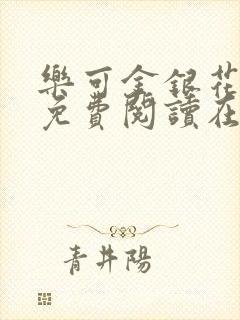 樂可金銀花
免費閱讀在
青井陽